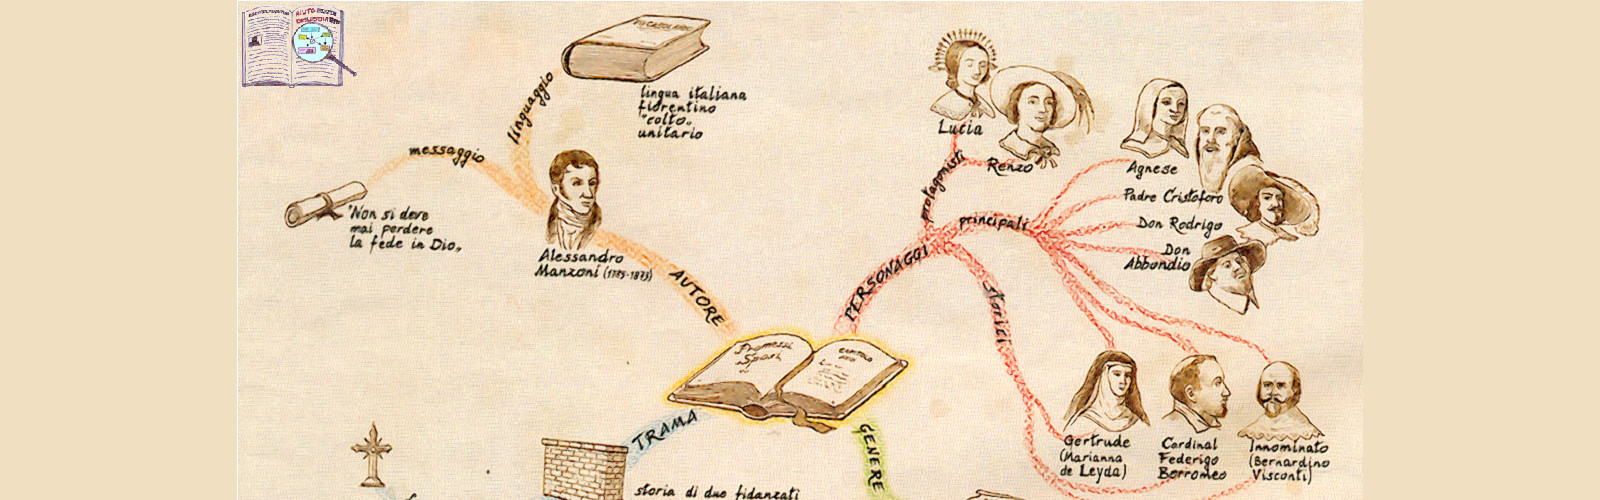 AIUTO
VOCABOLARIO
linguaggio
lingua italiana
fiorentino
"colto"
unitario
messaggio
"Non si deve
mai perdere
la fede in Dio"
Alessandro
Manzoni (1785-1873)
AUTORE
Lucia
Renzo
protagonisti
Agnese
Padre Cristoforo
Don Rodrigo
Don
Abbondio
principali
PERSONAGGI
storici
Promessi
Sposi
CAPITOLO
Gertrude
(Marianna
de Leyda)
Cardinal
Federigo
Borromeo
Innominato
(Bernardino
Visconti)
TRAMA
GENERE
storia di due fidanzati